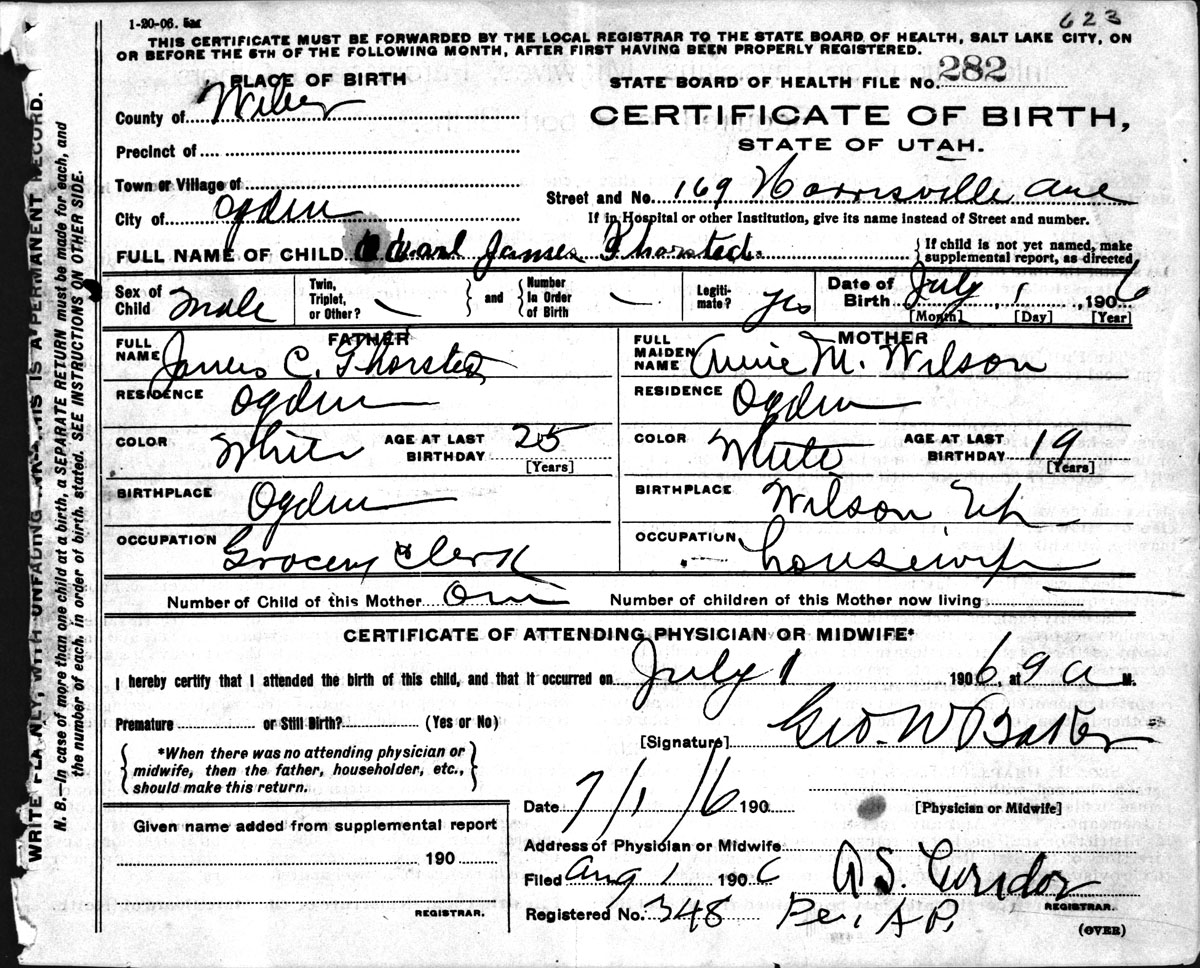 623
1-20-06.
THIS CERTIFICATE MUST BE FORWARDED BY THE LOCAL REGISTRAR TO THE STATE BOARD OF HEALTH, SALT LAKE CITY, ON
OR BEFORE THE 5TH OF THE FOLLOWING MONTH, AFTER FIRST HAVING BEEN PROPERLY REGISTERED.
PLACE OF BIRTH
STATE BOARD OF HEALTH FILE No. 282
County of Weber
CERTIFICATE OF BIRTH,
STATE OF UTAH.
Precinct of
Town or Village of
Street and No. 169 Harrisville Ave
City of Ogden
If in Hospital or other Institution, give its name instead of Street and number.
FULL NAME OF CHILD Earl James Thorsted. { If child is not yet named, make supplemental report, as directed
Sex of Child Male
Twin, Triplet, or Other? — and Number In Order of Birth —
Legitimate? yes
Date of Birth July 1, 1906
[Month] [Day] [Year]
FATHER
MOTHER
FULL NAME James C. Thorsted
FULL MAIDEN NAME Annie M. Wilson
RESIDENCE Ogden
RESIDENCE Ogden
COLOR White AGE AT LAST BIRTHDAY 25 [Years]
COLOR White AGE AT LAST BIRTHDAY 19 [Years]
BIRTHPLACE Ogden
BIRTHPLACE Wilson, Ut
OCCUPATION Grocery Clerk
OCCUPATION housewife
Number of Child of this Mother One Number of children of this Mother now living
CERTIFICATE OF ATTENDING PHYSICIAN OR MIDWIFE*
I hereby certify that I attended the birth of this child, and that it occurred on July 1 1906, at 9 a M.
Premature or Still Birth? (Yes or No)
[Signature] Geo. W Baker
*When there was no attending physician or
midwife, then the father, householder, etc.,
should make this return.
Date 7/1/6 190
[Physician or Midwife]
Given name added from supplemental report
Address of Physician or Midwife
190
Filed Aug 1 1906 A. S.
REGISTRAR.
REGISTRAR.
Registered No. 348 Per. A P.
(OVER)
WRITE PLAINLY, WITH UNFADING INK—THIS IS A PERMANENT RECORD.
N. B.—In case of more than one child at a birth, a SEPARATE RETURN must be made for each, and
the number of each, in order of birth, stated. SEE INSTRUCTIONS ON OTHER SIDE.